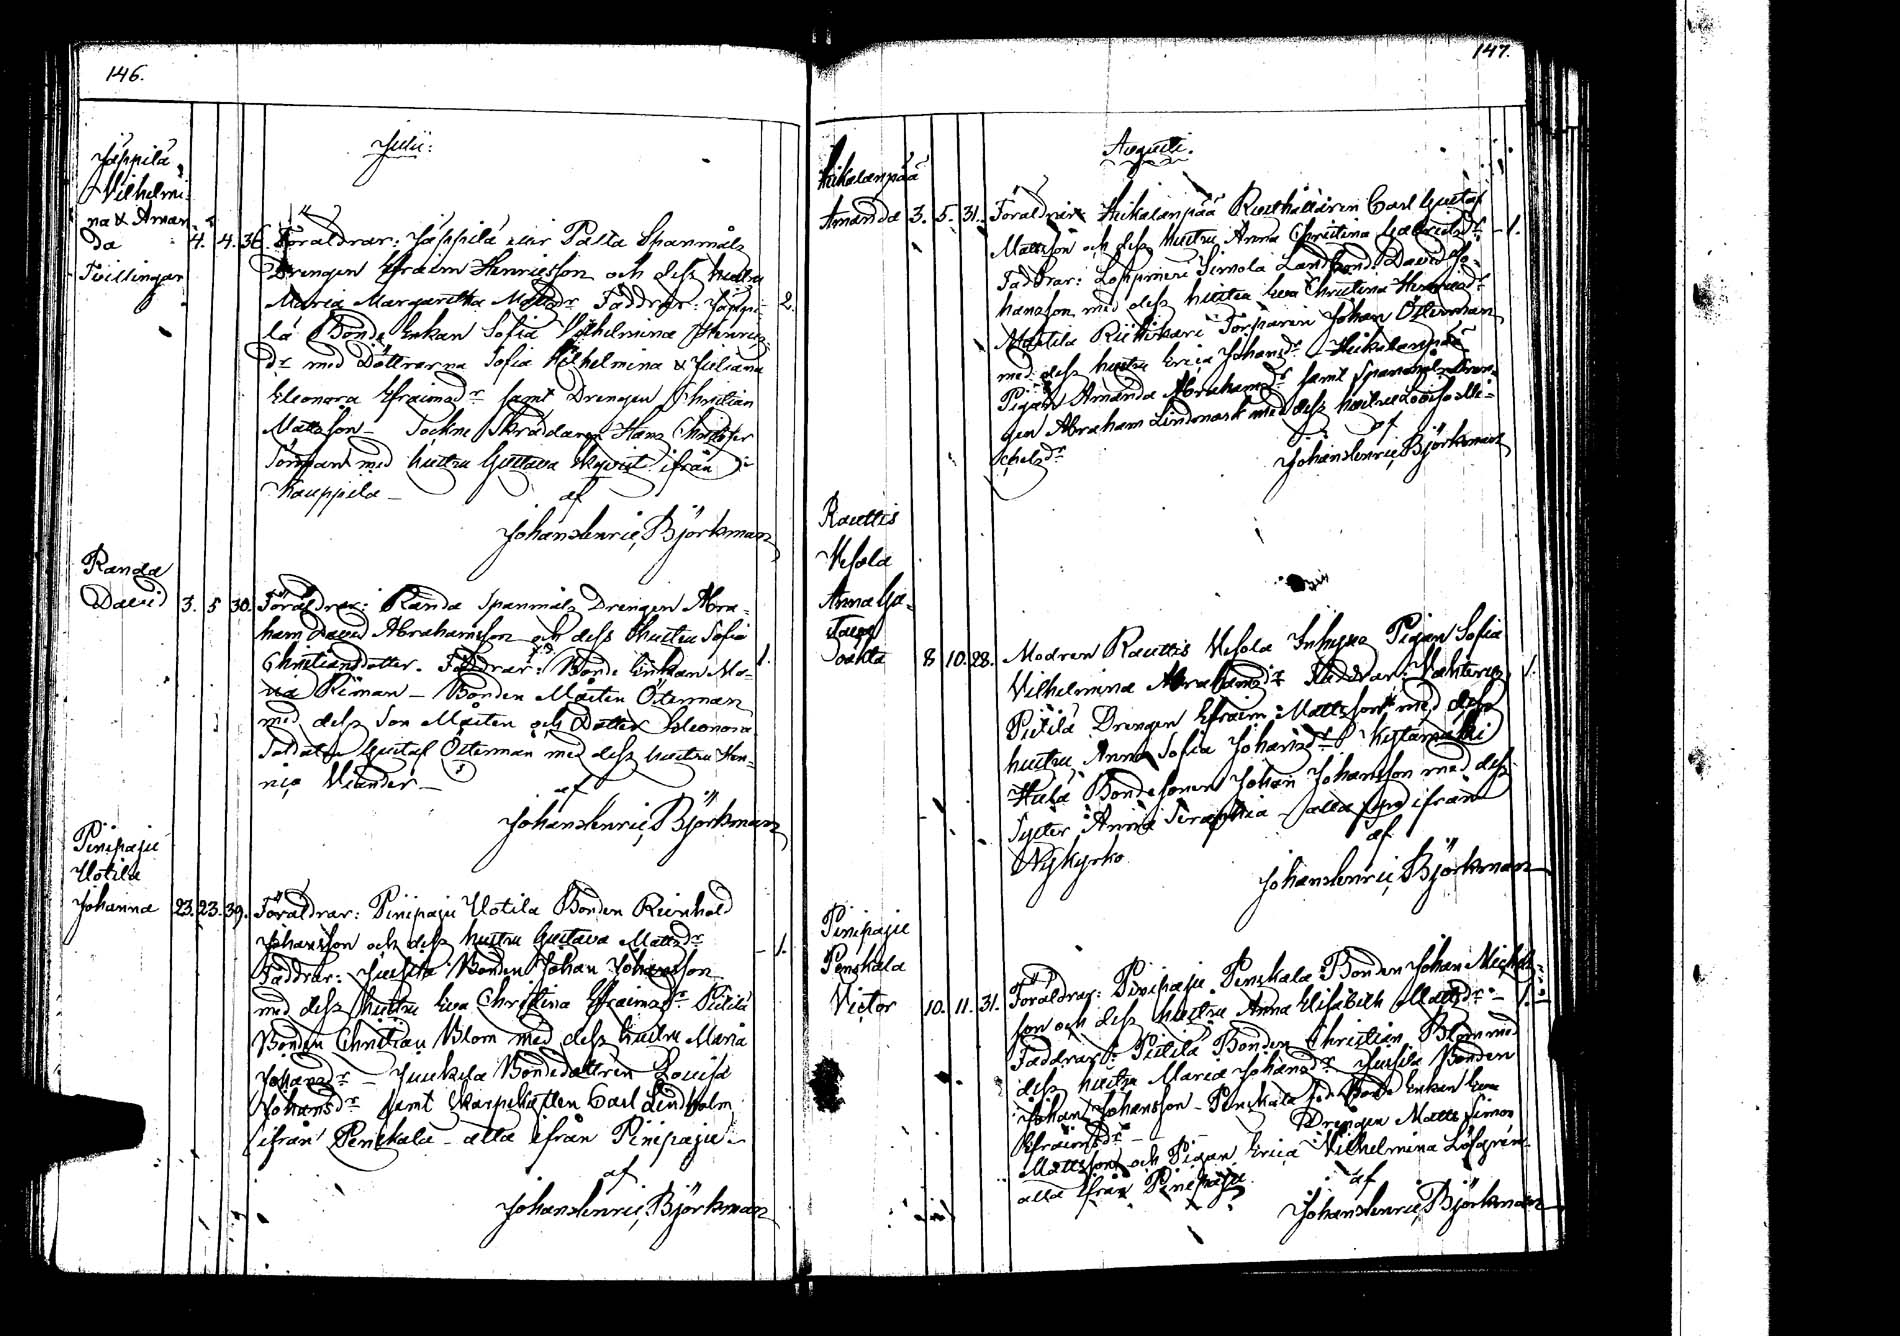 146.
Julii:
Jäppilä
Vilhelmi-
na & Aman
da 4. 4. 36.
Tvillingar
Föräldrar: Jäppilä eller Palta Spanmåls
Drengen Efraim Henricsson och dess hustru
Maria Margaretha Mattsdr Faddrar: Jäppi- 2.
lä Bonde Enkan Sofia Vilhelmina Henrics-
dr med Döttrarna Sofia Vilhelmina & Juliana
Eleonora Efraimsdr samt Drengen Christian
Mattsson – Sockne Skräddaren Hans Christofer
med hustru Gustava Kyvist ifrån
Kauppila –
af
Johan Henric Björkman
Randa
David 3. 5 30.
Föräldrar: Randa Spanmåls Drengen Abra-
ham David Abrahamsson och dess hustru Sofia
Christiansdotter. Faddrar: Bonde Enkan Ma- 1.
ria Riman – Bonden Mårten Österman
med dess Son Mårten och Dotter Eleonora
Soldaten Gustaf Österman med dess hustru Hen-
rica Viander –
af
Johan Henric Björkman
Pinipaju
Uotila
Johanna 23. 23. 39.
Föräldrar: Pinipaju Uotila Bonden Reinhold
Johansson och dess hustru Gustava Mattsdr – 1.
Faddrar: Jussila Bonden Johan Johansson
med dess hustru Eva Christina Efraimsdr Pietilä
Bonden Christian Blom med dess hustru Maria
Johansdr – Juukela Bondedottren Lovisa
Johansdr samt Carl Lindholm
ifrån Penskala – alla ifrån Pinipaju –
af
Johan Henric Björkman
147.
Augusti.
Heikolanpää
Amanda 3. 5. 31.
Föräldrar: Heikolanpää Rusthållaren Carl Gustaf
Mattsson och dess hustru Anna Christina Gabrielsdr – 1.
Faddrar: Loppineni Simola Landbond. David Jo-
hansson med dess hustru Eva Christina Hermansdr
Torparen Johan Österman
med dess hustru Erica Johansdr – Heikolanpää
Pigan Amanda Abrahamsdr samt Spanmåls Dren-
gen Abraham Lindroos med dess hustru Lovisa Mi-
chelsdr
af
Johan Henric Björkman
Rauttis
Vesola
Anna Gu-
stava
Soakta 8 10. 28.
Modren Rauttis Vesola Inhyses Pigan Sofia
Vilhelmina Abrahamsdr Faddrar: Vahteris 1.
Pietilä Drengen Efraim Mattsson med dess
hustru Anna Sofia Johansdr Kytämäki
Hulä Bondesonen Johan Johansson med dess
Syster Anna Seraphia – alla ifrån
Nykyrko
af
Johan Henric Björkman
Pinipaju
Penskala
Victor 10. 11. 31.
Föräldrar: Pinipaju Penskala Bonden Johan Michels-
son och dess hustru Anna Elisabeth Mattsdr – 1.
Faddrar: Pietilä Bonden Christian Blom med
dess hustru Maria Johansdr Jussila Bonden
Johan Johansson – Penskala Bonde Enkan Eva
Efraimsdr – Drengen Matts Simon
Mattsson och Pigan Erica Vilhelmina Löfgren
alla ifrån Pinipaju
af
Johan Henric Björkman